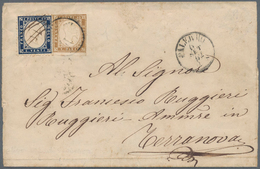 PALERMO
Al Signor
Sig Francesco Ruggieri
Ruggieri Ammre in
Terranova